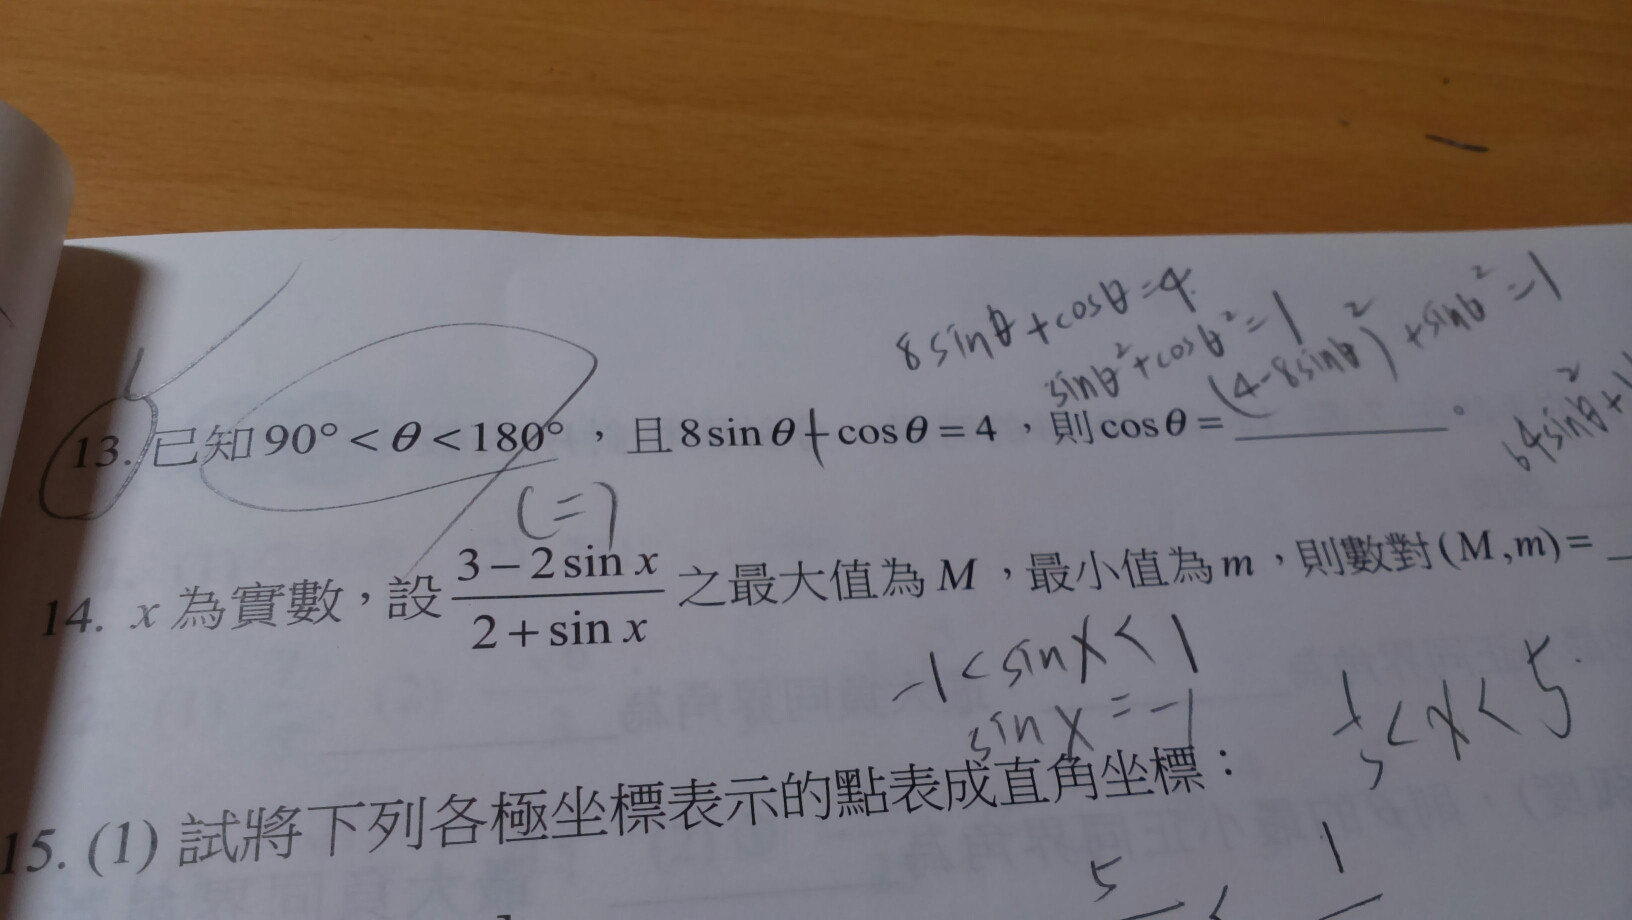 8sinθ+cosθ=4
sinθ²+cosθ²=1
(4-8sinθ)²+sinθ²=1
64sinθ²+1
13. 已知 90° < θ < 180°,且 8 sin θ + cos θ = 4,則 cos θ = ________。
(=)
14. x 為實數,設 (3 − 2 sin x)/(2 + sin x) 之最大值為 M,最小值為 m,則數對 (M, m) = _
-1<sinx<1
sinx=-1
1/3<x<5
15. (1) 試將下列各極坐標表示的點表成直角坐標:
5 < 1